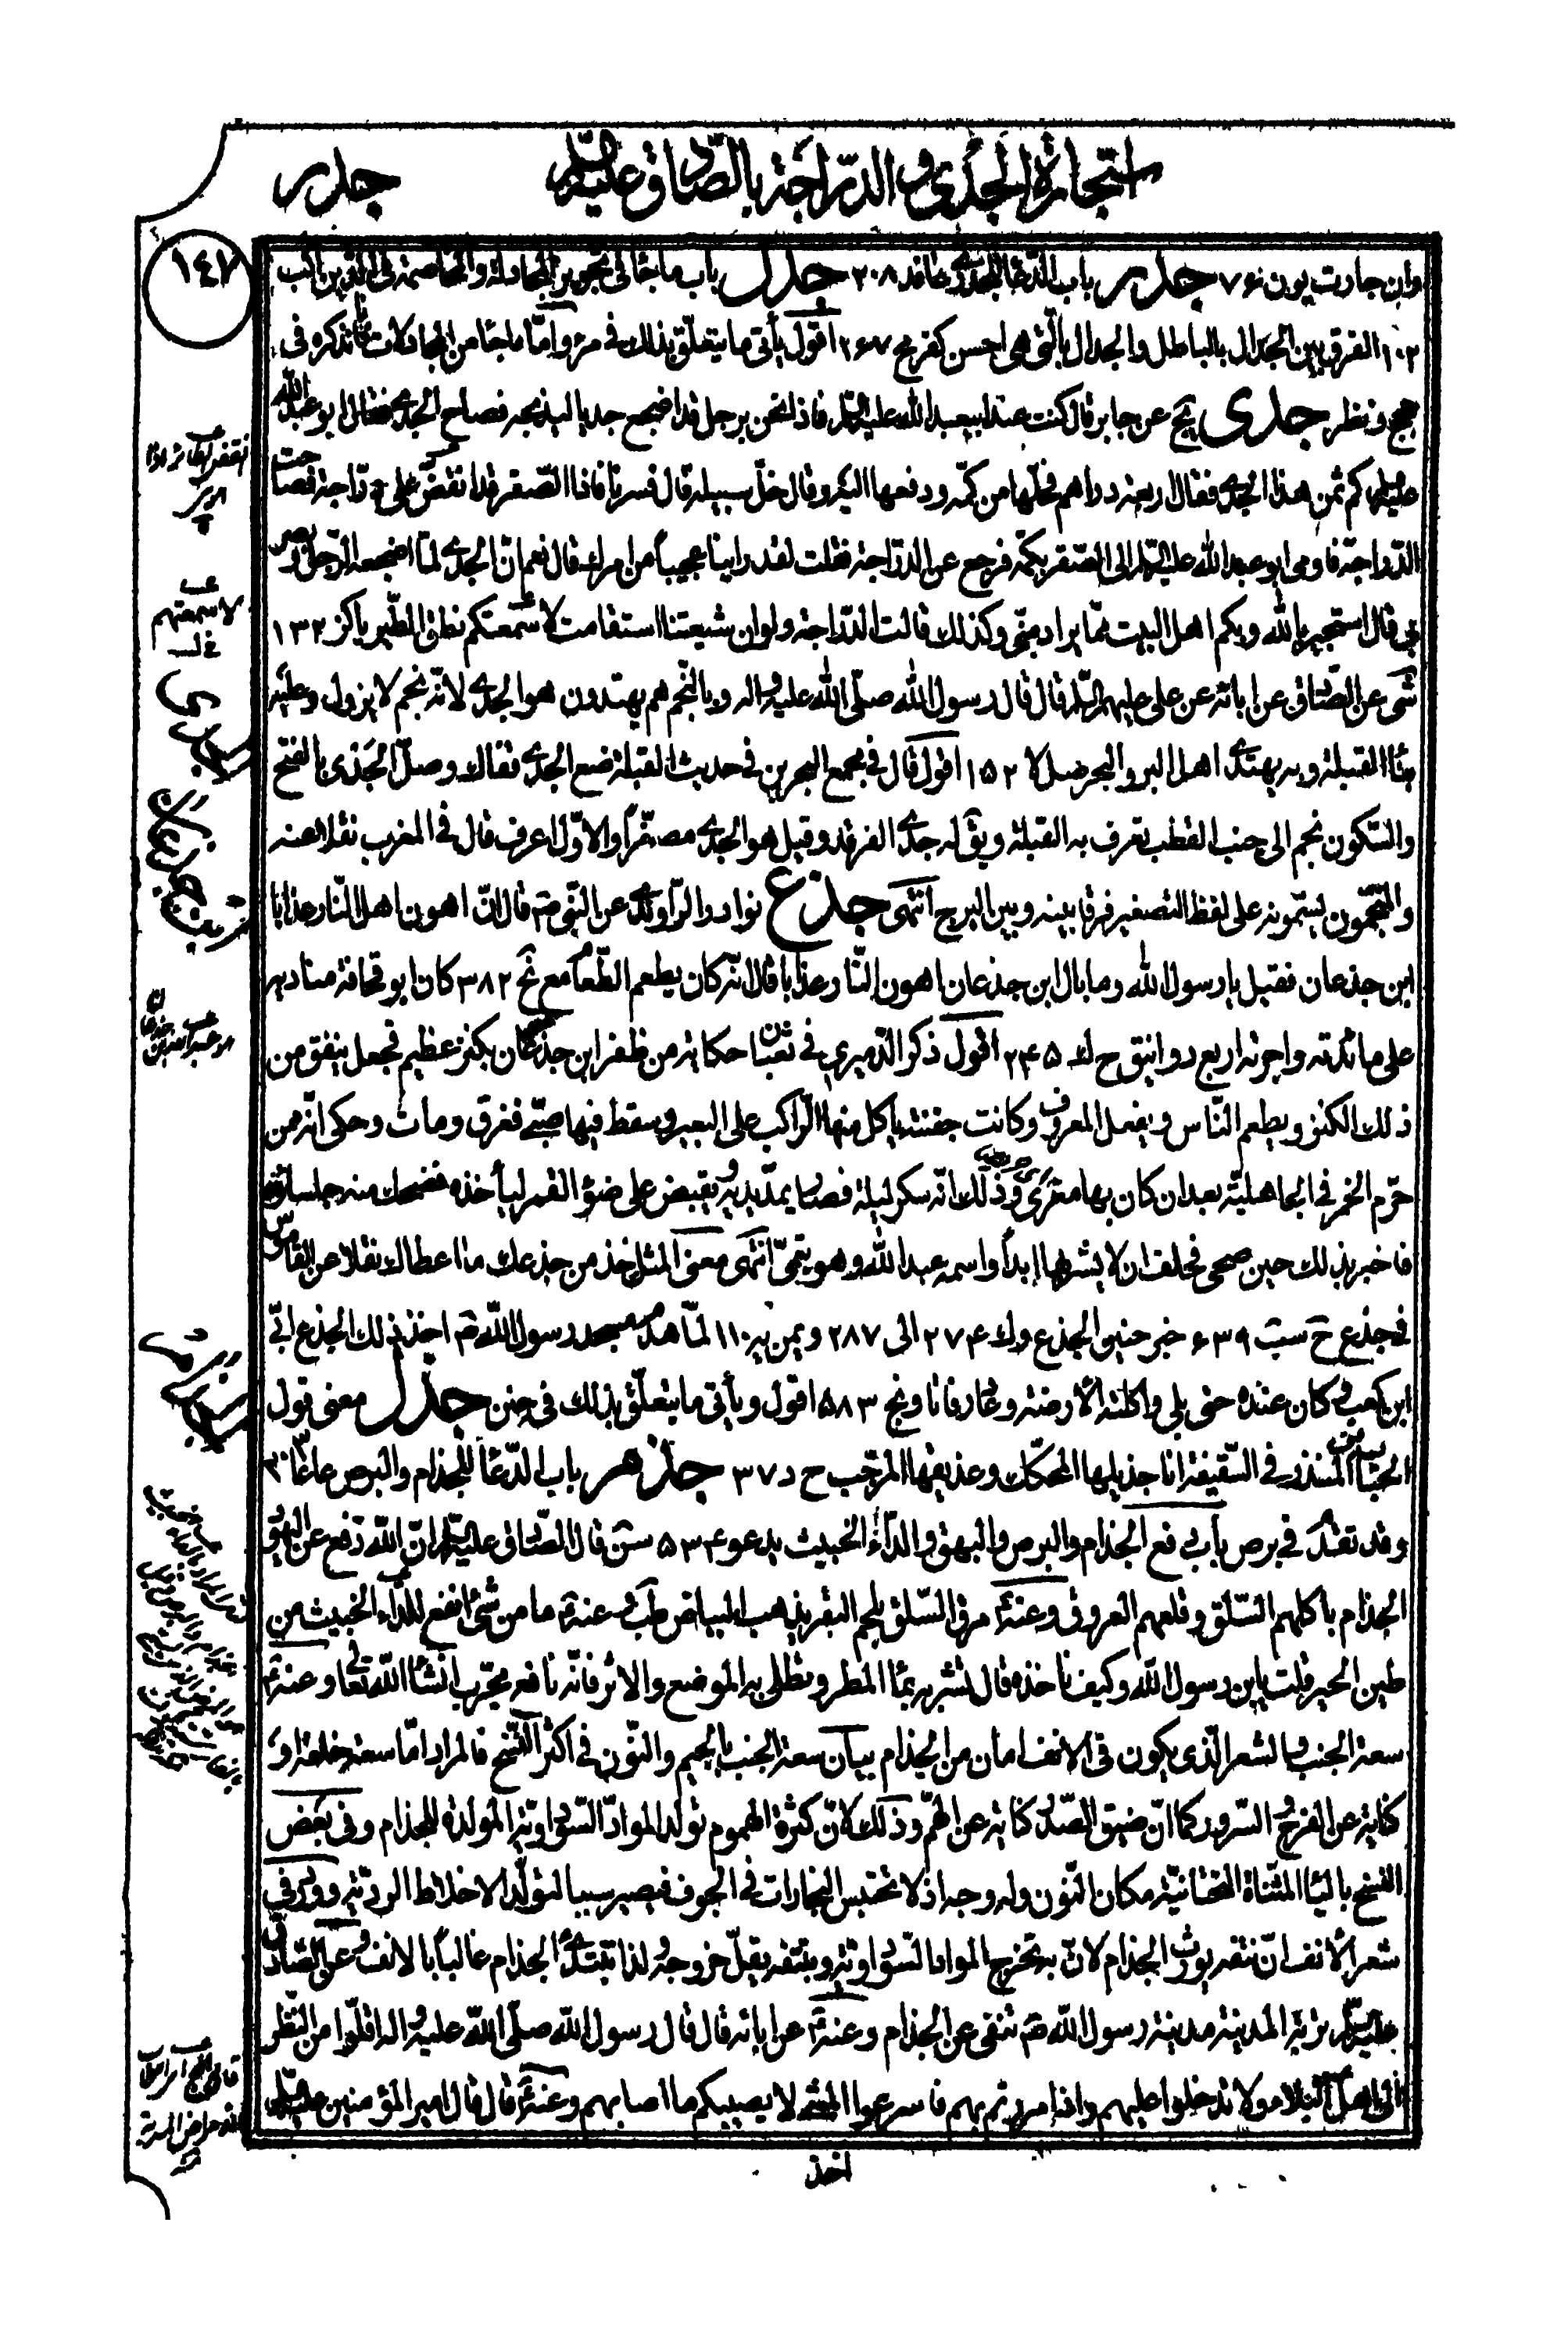 استجارة الجدي و الدراجة بالصادق عليه السلام جدر
١٤٧
وان جارت يون عو ٧ جدر باب الدعا للجدري عا قد ٢٠٨ جدل باب ما جاء في تجويز المجادلة والمخاصمة في الدين
١٠٢ الفرق بين الجدال بالباطل والجدال بالتي هي احسن كفر مج اقول يأتي ما يتعلق بذلك في مرء واما ما جاء من المجادلات نذكره في
حجج ونظر جدى يج عن جابر قال كنت عند ابيعبد الله عليه السلام فاذا نحن برجل قد اضجع جديا ليذبحه فصاح الجدي فقال ابو عبد الله
عليه السلام كم ثمن هذا الجدي فقال اربعة دراهم فحلها من كمه ودفعها اليه وقال خل سبيله قال فسرنا فاذا الصقر قد انقض على دراجة فصاحت
الدراجة فاومى ابو عبد الله عليه السلام الى الصقر بكمه فرجع عن الدراجة فقلت لقد راينا عجيبا من امرك قال نعم ان الجدي لما اضجعه الرجل وبصر
بي قال استجير بالله وبكم اهل البيت مما يراد مني وكذلك قالت الدراجة ولو ان شيعتنا استقامت لاسمعتكم نطق الطير يا كز ١٣٢
شى عن الصادق عن ابائه عن علي عليهم السلام قال قال رسول الله صلى الله عليه واله وبالنجم هم يهتدون هو الجدي لانه نجم لا يزول وعليه
بناء القبلة وبه يهتدي اهل البر والبحر ضلا ١٥٢ اقول قال في مجمع البحرين في حديث القبلة ضع الجدي فقاك وصل الجدي بالفتح
والسكون نجم الى جنب القطب تعرف به القبلة ويق له جدي الفرقد وقيل هو الجدي مصغرا والاول اعرف قال في المغرب نقلا عنه
والمنجمون يسمونه على لفظ التصغير فرقا بينه وبين البرج انتهى جذع نوادر الراوندي عن النبي ص قال ان اهون اهل النار عذابا
ابن جذعان فقيل يا رسول الله وما بال ابن جذعان اهون النار عذابا قال انه كان يطعم الطعام مع نح ٣٨٢ كان ابو قحافة مناديه
على مائدته واجرته اربع دوانيق ح اقول ذكر الدميري في ثعبان حكاية من ظفر ابن جذعان بكنز عظيم فجعل ينفق من
ذلك الكنز ويطعم الناس ويفعل المعروف وكانت جفنته ياكل منها الراكب على البعير وسقط فيها صبي فغرق ومات وحكى انه من
حرم الخمر في الجاهلية بعد ان كان بها مغرى وذلك انه سكر ليلة فصار يمد يديه ويقبض على ضوء القمر ليأخذه فضحك منه جلساؤه
فاخبر بذلك حين صحى فحلف ان لا يشربها ابدا واسمه عبد الله وهو تيمي انتهى معنى المثل خذ من جذعك ما اعطاك نقلا عن القاموس
في جذع ح خبر حنين الجذع الى ٢٨٧ ويمن ير ١١٠ لما هدم مسجد رسول الله ص اخذ ذلك الجذع ابي
ابن كعب وكان عنده حتى بلى واكلته الارضة وعاد رفاتا ونج ٥٨٣ اقول ويأتي ما يتعلق بذلك في حنن جذل معنى قول
الحباب بن المنذر في السقيفة انا جذيلها المحكك وعذيقها المرجب ح د ٣٧ جذم باب الدعا للجذام والبرص
وقد تقدم في برص باب يدفع الجذام والبرص والبهق والداء الخبيث سن قال الصادق عليه السلام ان الله دفع عن اليهود
الجذام باكلهم السلق وقلعهم العروق وعنه مرق السلق بلحم البقر يذهب البياض طب وعنه ما من شئ انفع للداء الخبيث من
طين الحير قلت يابن رسول الله وكيف ناخذه قال تشربه بماء المطر وتطلى به الموضع والاثر فانه نافع مجرب انشاء الله تعالى وعنه
سعة الجنب والشعر الذى يكون في الانف امان من الجذام بيان سعة الجنب بالجيم والنون في اكثر النسخ فالمراد اما سعة خلقة او
كناية عن الفرح والسرور كما ان ضيق الصدر كناية عن الهم وذلك لان كثرة الهموم تولد المواد السوداوية المولدة للجذام وفي بعض
النسخ بالياء المثناة التحتانية مكان النون وله وجه اذ لا تحتبس البخارات في الجوف فيصير سببا لتولد الاخلاط الردية وورد في
شعر الانف ان نتفه يورث الجذام لان به تخرج المواد السوداوية وبنتفه يقل خروجه لذا تبتدئ الجذام غالبا بالانف وعن الصادق
عليه السلام تربة المدينة مدينة رسول الله ص تنفى عن الجذام وعنه عن ابائه قال قال رسول الله صلى الله عليه واله اقلوا من النظر
الى اهل البلاء ولا تدخلوا عليهم واذا مررتم بهم فاسرعوا المشى لا يصيبكم ما اصابهم وعنه قال قال امير المؤمنين عليه السلام
اخذ
لاسمعتهم